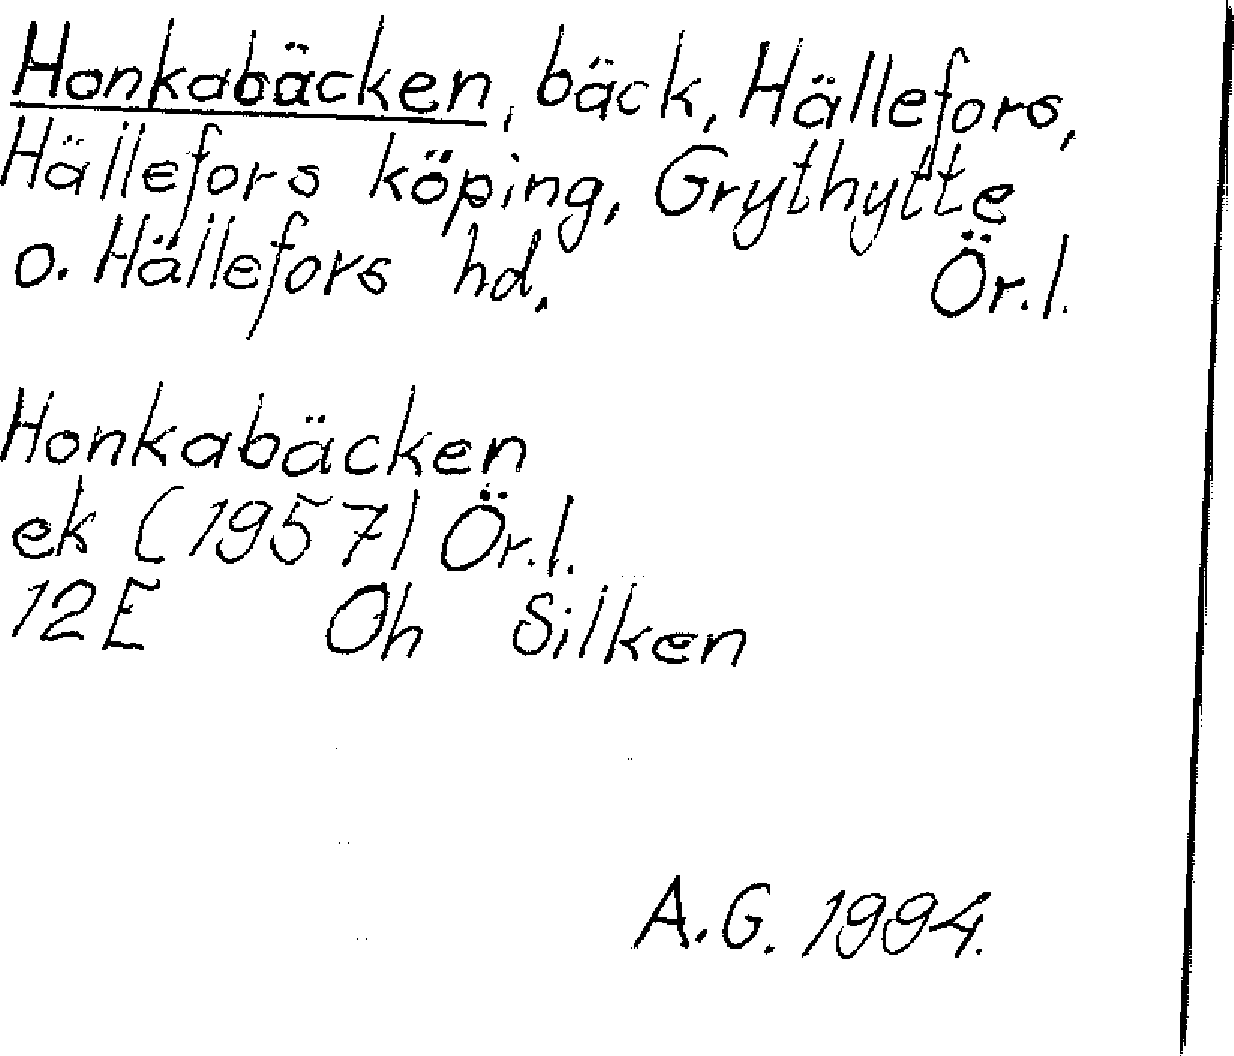 Honkabäcken, bäck, Hällefors,
Hällefors köping, Grythytte
o. Hällefors hd. Ör.l.
Honkabäcken
ek (1957) Ör.l.
12E Oh Silken
A.G. 1994.